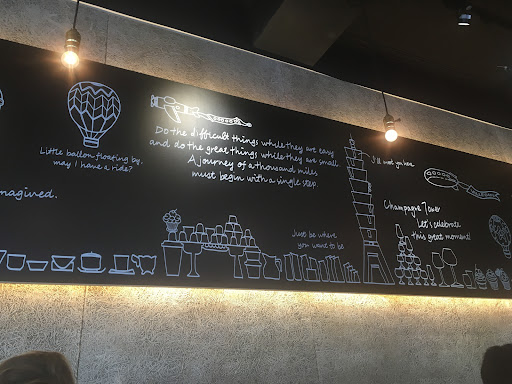 Little ballon floating by.
may I have a ride?
imagined.
Do the difficult things while they are easy
and do the great things while they are small.
A journey of a thousand miles
must begin with a single step.
Just be where
you want to be
I'll meet you here
Champagne Tower
let's celebrate
this great moment!